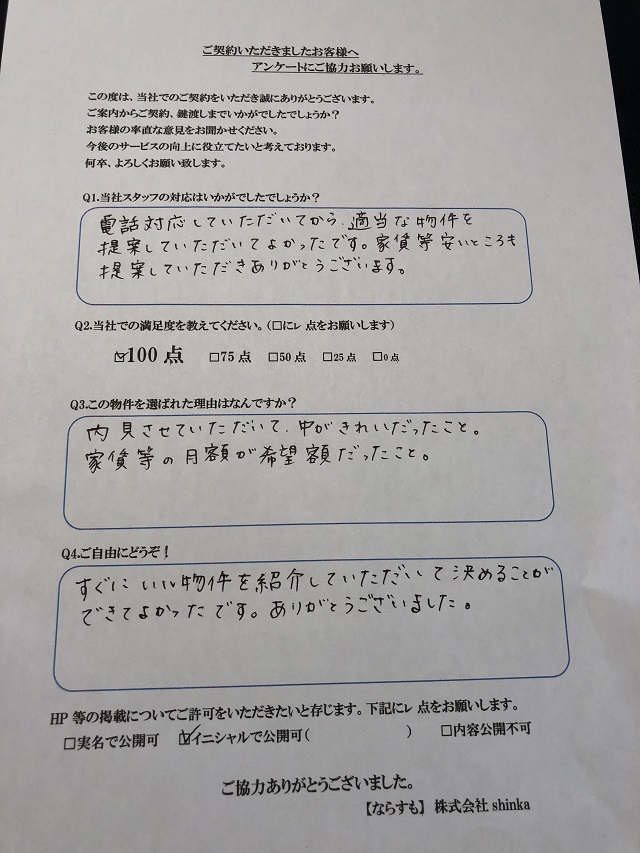 ご契約いただきましたお客様へ
アンケートにご協力お願いします。
この度は、当社でのご契約をいただき誠にありがとうございます。
ご案内からご契約、鍵渡しまでいかがでしたでしょうか？
お客様の率直な意見をお聞かせください。
今後のサービスの向上に役立てたいと考えております。
何卒、よろしくお願い致します。
Q1.当社スタッフの対応はいかがでしたでしょうか？
電話対応していただいてから、適当な物件を
提案していただいてよかったです。家賃等安いところも
提案していただきありがとうございます。
Q2.当社での満足度を教えてください。（□にレ点をお願いします）
☑100点 □75点 □50点 □25点 □0点
Q3.この物件を選ばれた理由はなんですか？
内見させていただいて、中がきれいだったこと。
家賃等の月額が希望額だったこと。
Q4.ご自由にどうぞ！
すぐにいい物件を紹介していただいて決めることが
できてよかったです。ありがとうございました。
HP等の掲載についてご許可をいただきたいと存じます。下記にレ点をお願いします。
□実名で公開可 ☑イニシャルで公開可（ ） □内容公開不可
ご協力ありがとうございました。
【ならすも】株式会社shinka